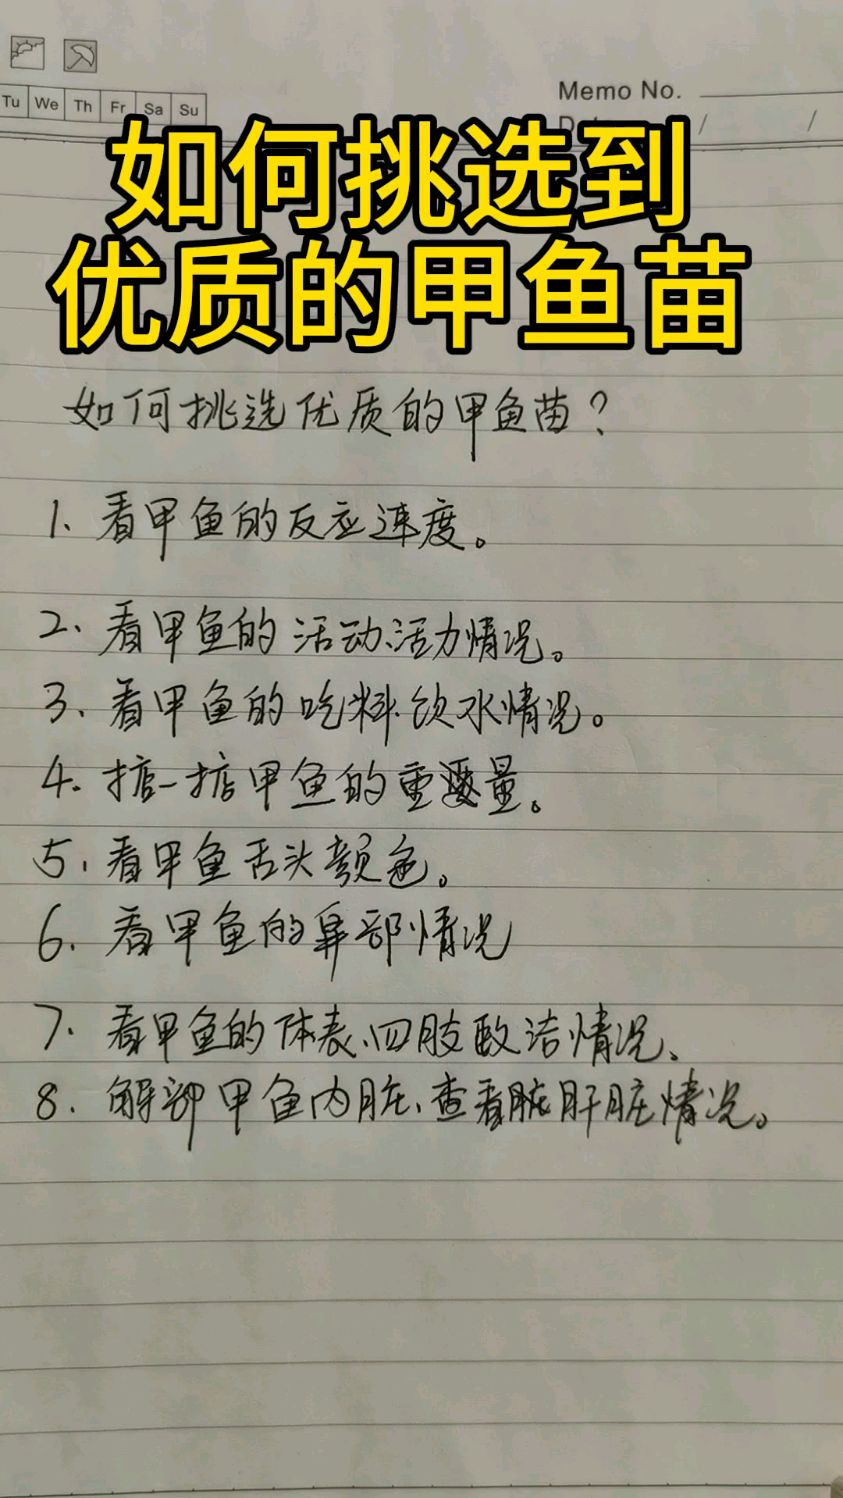 Tu We Th Fr Sa Su
Memo No.
/ /
如何挑选到
优质的甲鱼苗
如何挑选优质的甲鱼苗？
1. 看甲鱼的反应速度。
2. 看甲鱼的活动、活力情况。
3. 看甲鱼的吃料、饮水情况。
4. 掂一掂甲鱼的重量。
5. 看甲鱼舌头颜色。
6. 看甲鱼的鼻部情况
7. 看甲鱼的体表、四肢 情况、
8. 解剖甲鱼内脏、查看 肝脏情况。